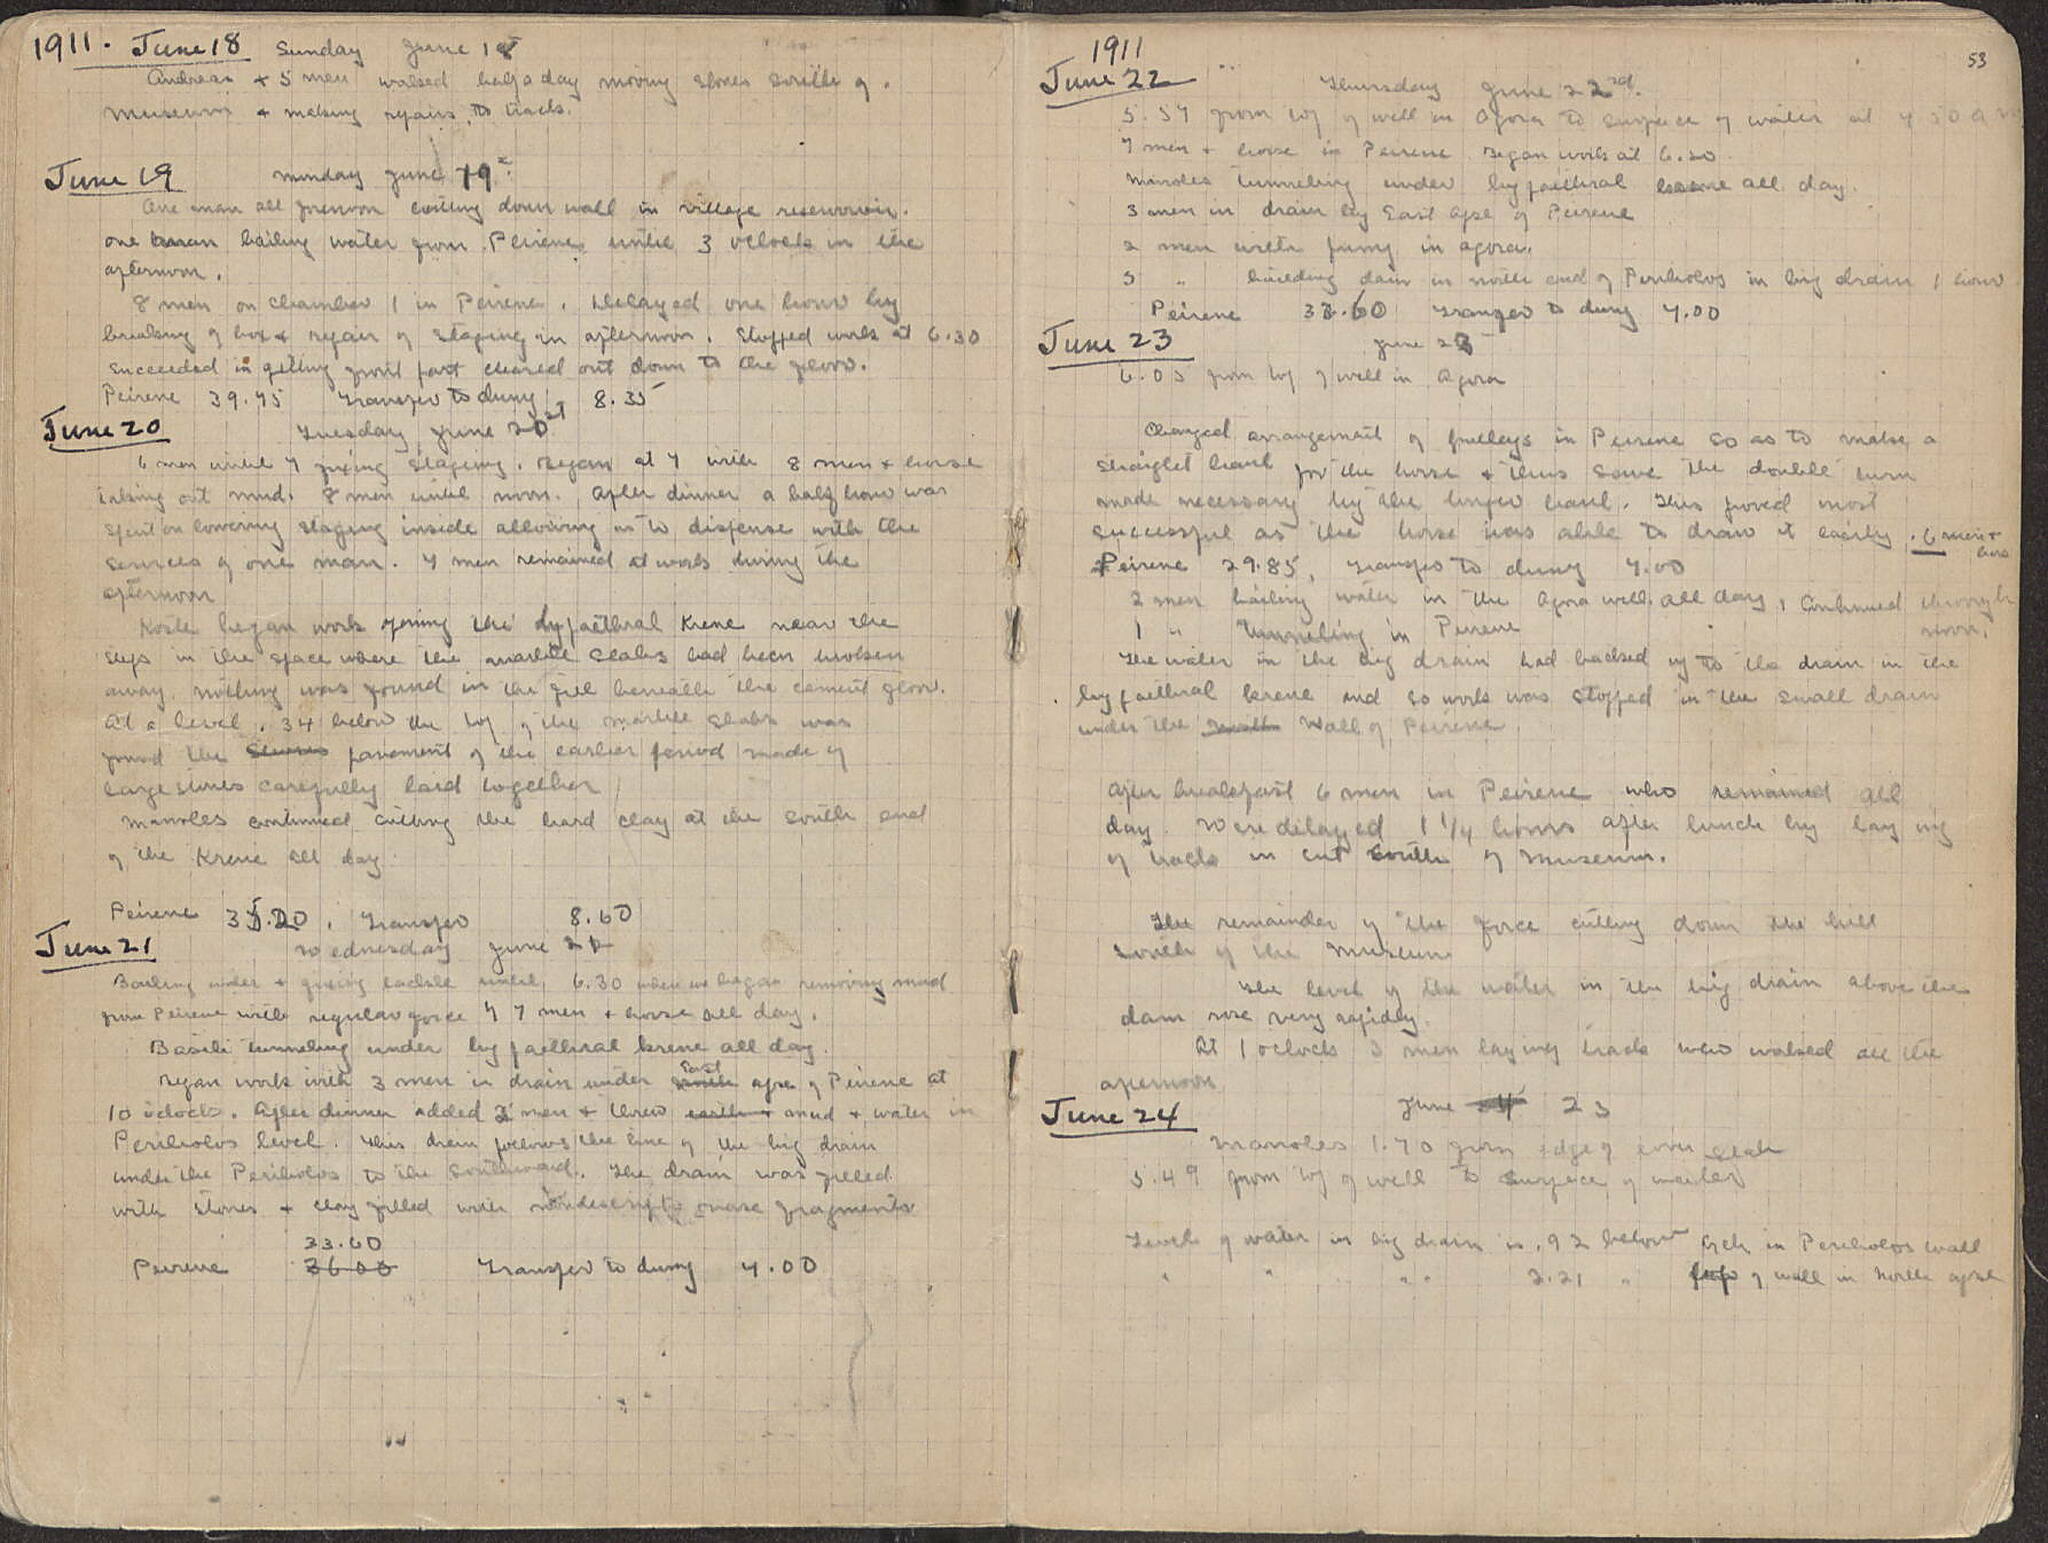 1911. June 18 Sunday June 18
Andreas + 5 men worked half a day moving stones south of
museum + making repairs to track.
June 19 Monday June 19th
One man all forenoon cutting down wall in village reservoir.
one man bailing water from Peirene until 3 oclock in the
afternoon.
8 men on chamber 1 in Peirene. Delayed one hour by
breaking of box + repair of staging in afternoon. Stopped work at 6.30
succeeded in getting front part cleared out down to the floor.
Peirene 39.45 Transfer to dump 8.35
June 20 Tuesday June 20st
6 men until 7 fixing staging. Began at 7 with 8 men + horse
taking out mud. 8 men until noon. After dinner a half hour was
spent on lowering staging inside allowing us to dispense with the
services of one man. 7 men remained at work during the
afternoon
Kosta began work joining the hypaethral Krene near the
steps in the space where the marble slabs had been broken
away. nothing was found in the fill beneath the cement floor.
At a level .34 below the top of the marble slabs was
found the stones pavement of the earlier period made of
large stones carefully laid together
Manoles continued cutting the hard clay at the south end
of the Krene all day.
Peirene 35.20. Transfer 8.60
June 21 Wednesday June 21
Bailing water + fixing tackle until 6.30 when we began removing mud
from Peirene with regular force of 7 men + horse all day.
Basili tunneling under hypaethral krene all day.
Began work with 3 men in drain under south East apse of Peirene at
10 oclock. After dinner added 2 men + threw earth + mud + water in
Peribolos level. This drain follows the line of the big drain
under the Peribolos to the southward. The drain was filled
with stones + clay filled with nondescript coarse fragments
33.60
Peirene 36.00 Transfer to dump 4.00
53
1911
June 22 Thursday June 22nd.
5.57 from top of well in Agora to surface of water at 4 30 A M
7 men + horse in Peirene Began work at 6.30
Manoles tunneling under hypaethral krene all day.
3 men in drain by East apse of Peirene
2 men with pump in agora.
5 " building dam in north end of Peribolos in big drain 1 hour
Peirene 33.60 Transfer to dump 4.00
June 23 June 23
6.05 from top of well in Agora
Changed arrangement of pulleys in Peirene so as to make a
straight haul for the horse + thus save the double turn
made necessary by the longer haul. This proved most
successful as the horse was able to draw it easily. 6 men +
horse
Peirene 29.85, Transfer to dump 4.00
2 men bailing water in the Agora well all day, Continued through
1 " Tunneling in Peirene noon.
The water in the big drain had backed up to the drain in the
hypaethral krene and so work was stopped in the small drain
under the south Wall of Peirene
After breakfast 6 men in Peirene who remained all
day. Were delayed 1 1/4 hours after lunch by laying
of track in cut south of museum.
The remainder of the force cutting down the hill
South of the Museum
The level of the water in the big drain above the
dam rose very rapidly.
At 1 oclock 3 men laying track who worked all the
afternoon
June 24 June 24 23
Manoles 1.70 from edge of slab
5.49 from top of well to surface of water
Level of water in big drain is .92 below arch in Peribolos wall
" " " " 2.21 " top of wall in North apse